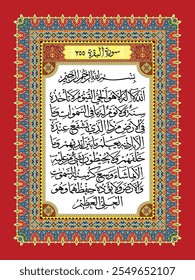 سورة البقرة ٢٥٥
بسم الله الرحمن الرحيم
الله لا إله إلا هو الحي القيوم لا تأخذه
سنة ولا نوم له ما في السموات وما
في الأرض من ذا الذي يشفع عنده
إلا بإذنه يعلم ما بين أيديهم وما
خلفهم ولا يحيطون بشيء من علمه
إلا بما شاء وسع كرسيه السموات
والأرض ولا يؤده حفظهما وهو
العلي العظيم
shutterstock.com · 2549652107